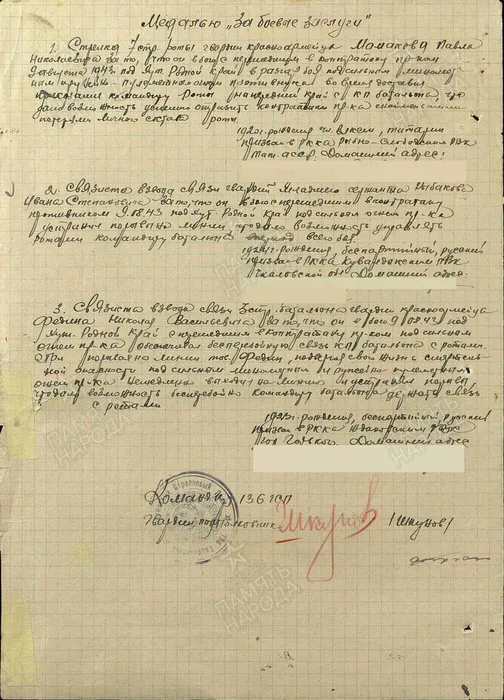 Медалью "За боевые заслуги"
1. Стрелка 7 стр. роты гвардии красноармейца Манакова Павла
Николаевича за то, что он в бою перешедшим в контратаку пр-ком
9 августа 1943 под хут. Родной Край в разгар боя под сильным миномет
ным оружейно-пулеметным огнем противника во время доставил
приказание командиру роты на передний край с КП батальона, что
дало возможность успешно отразить контратаки пр-ка с
потерями личного состава роты
1925 г. рождения чл. ВЛКСМ, татарин
призван в РККА Рыбно-Слободским РВК
Тат. асср. Домашний адрес:
2. Связиста взвода связи гвардии младшего сержанта Рыбакова
Ивана Степановича за то, что он в бою с перешедшим в контратаку
противником 9.08.43 под хут. Родной Край под сильным огнем пр-ка
устранил порывы линии, что дало возможность управлять
ротами командиру батальона всего боя.
1924 г. рождения, беспартийный, русский
призван в РККА Кувандокским РВК
Чкаловской обл Домашний адрес:
3. Связиста взвода связи 3 стр. батальона гвардии красноармейца
Федина Николая Васильевича за то, что он в бою 9.08.43 под
хут. Родной Край с перешедшим в контратаку пр-ком под сильным
огнем пр-ка обеспечивал бесперебойную связь КП батальона с ротами.
порывало линии тов. Федин, подвергая свою жизнь смертель
ной опасности под сильным минометным и ружейно пулеметным
огнем пр-ка немедленно выходил на линию и устранял порывы,
что дало возможность бесперебойно командиру батальона держать связь
с ротами
1923 г. рождения, беспартийный, русский
призван в РККА Ждановским РВК
гор Горького. Домашний адрес
Командир 136 гсп
гвардии подполковник Шкунов /Шкунов/
ПАМЯТЬ
НАРОДА